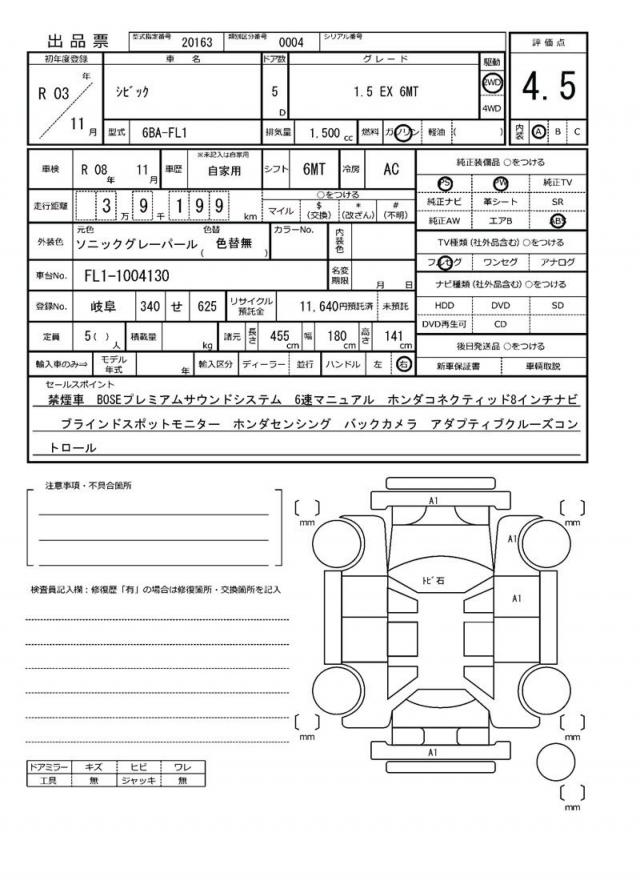 出品票 型式指定番号 20163 類別区分番号 0004 シリアル番号
初年度登録 車 名 ドア数 グレード 駆動 評価点
R 03 年 11 月 ｼﾋﾞｯｸ 5 D 1.5 EX 6MT 2WD 4WD 4.5
型式 6BA-FL1 排気量 1,500 cc 燃料 ガソリン 軽油 ( ) 内装 A B C
車検 R 08 年 11 月 車歴 ※未記入は自家用 自家用 シフト 6MT 冷房 AC 純正装備品 ○をつける
PS PW 純正TV
走行距離 3 万 9 千 1 9 9 km ○をつける マイル $ (交換) * (改ざん) # (不明) 純正ナビ 革シート SR
純正AW エアB ABS
外装色 元色 ソニックグレーパール 色替 ( 色替無 ) カラーNo. 内装色 TV種類 (社外品含む) ○をつける
フルセグ ワンセグ アナログ
車台No. FL1-1004130 名変期限 月 日 ナビ種類 (社外品含む) ○をつける
登録No. 岐阜 340 せ 625 リサイクル預託金 11,640円預託済 未預託 HDD DVD SD
DVD再生可 CD
定員 5 ( ) 人 積載量 kg 諸元 長さ 455 cm 幅 180 cm 高さ 141 cm 後日発送品 ○をつける
輸入車のみ⇒ モデル年式 年 輸入区分 ディーラー 並行 ハンドル 左 右 新車保証書 車輌取説
セールスポイント
禁煙車 BOSEプレミアムサウンドシステム 6速マニュアル ホンダコネクティッド8インチナビ
ブラインドスポットモニター ホンダセンシング バックカメラ アダプティブクルーズコン
トロール
注意事項・不具合箇所
検査員記入欄：修復歴「有」の場合は修復箇所・交換箇所を記入
A1
mm mm
A1
ﾄﾋﾞ石
A1
mm mm
A1
mm
ドアミラー キズ ヒビ ワレ
工具 無 ジャッキ 無